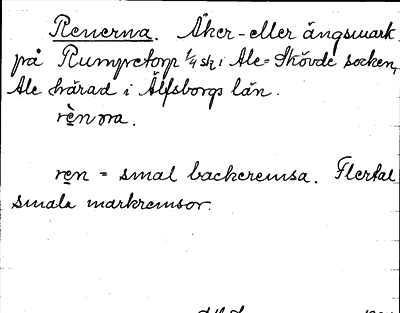 Renerna. Åker- eller ängsmark
på Rumpretorp 1/4 sk i Ale-Skövde socken,
Ale härad i Älfsborgs län.
rè̱nɷra.
re̱n = smal backeremsa. Flertal
smala markremsor.